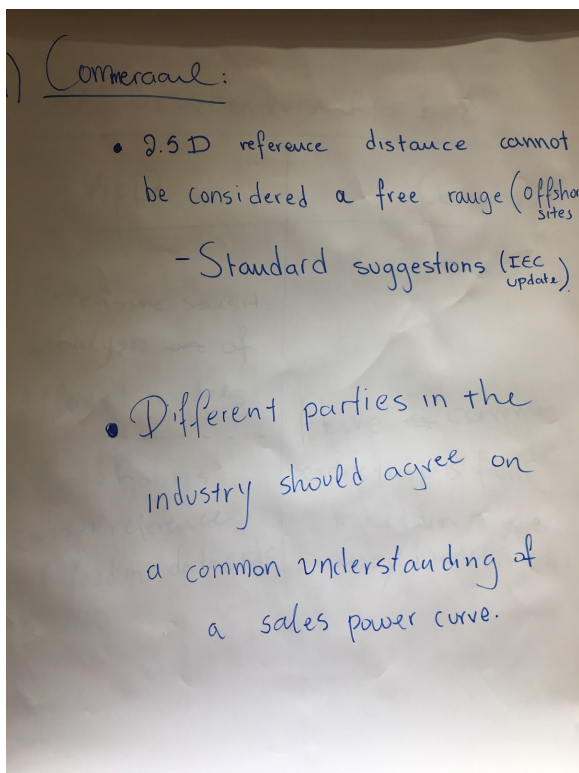 ) Commercial:
• 2.5 D reference distance cannot
be considered a free range (offshor
sites
- Standard suggestions (IEC
update)
• Different parties in the
industry should agree on
a common understanding of
a sales power curve.